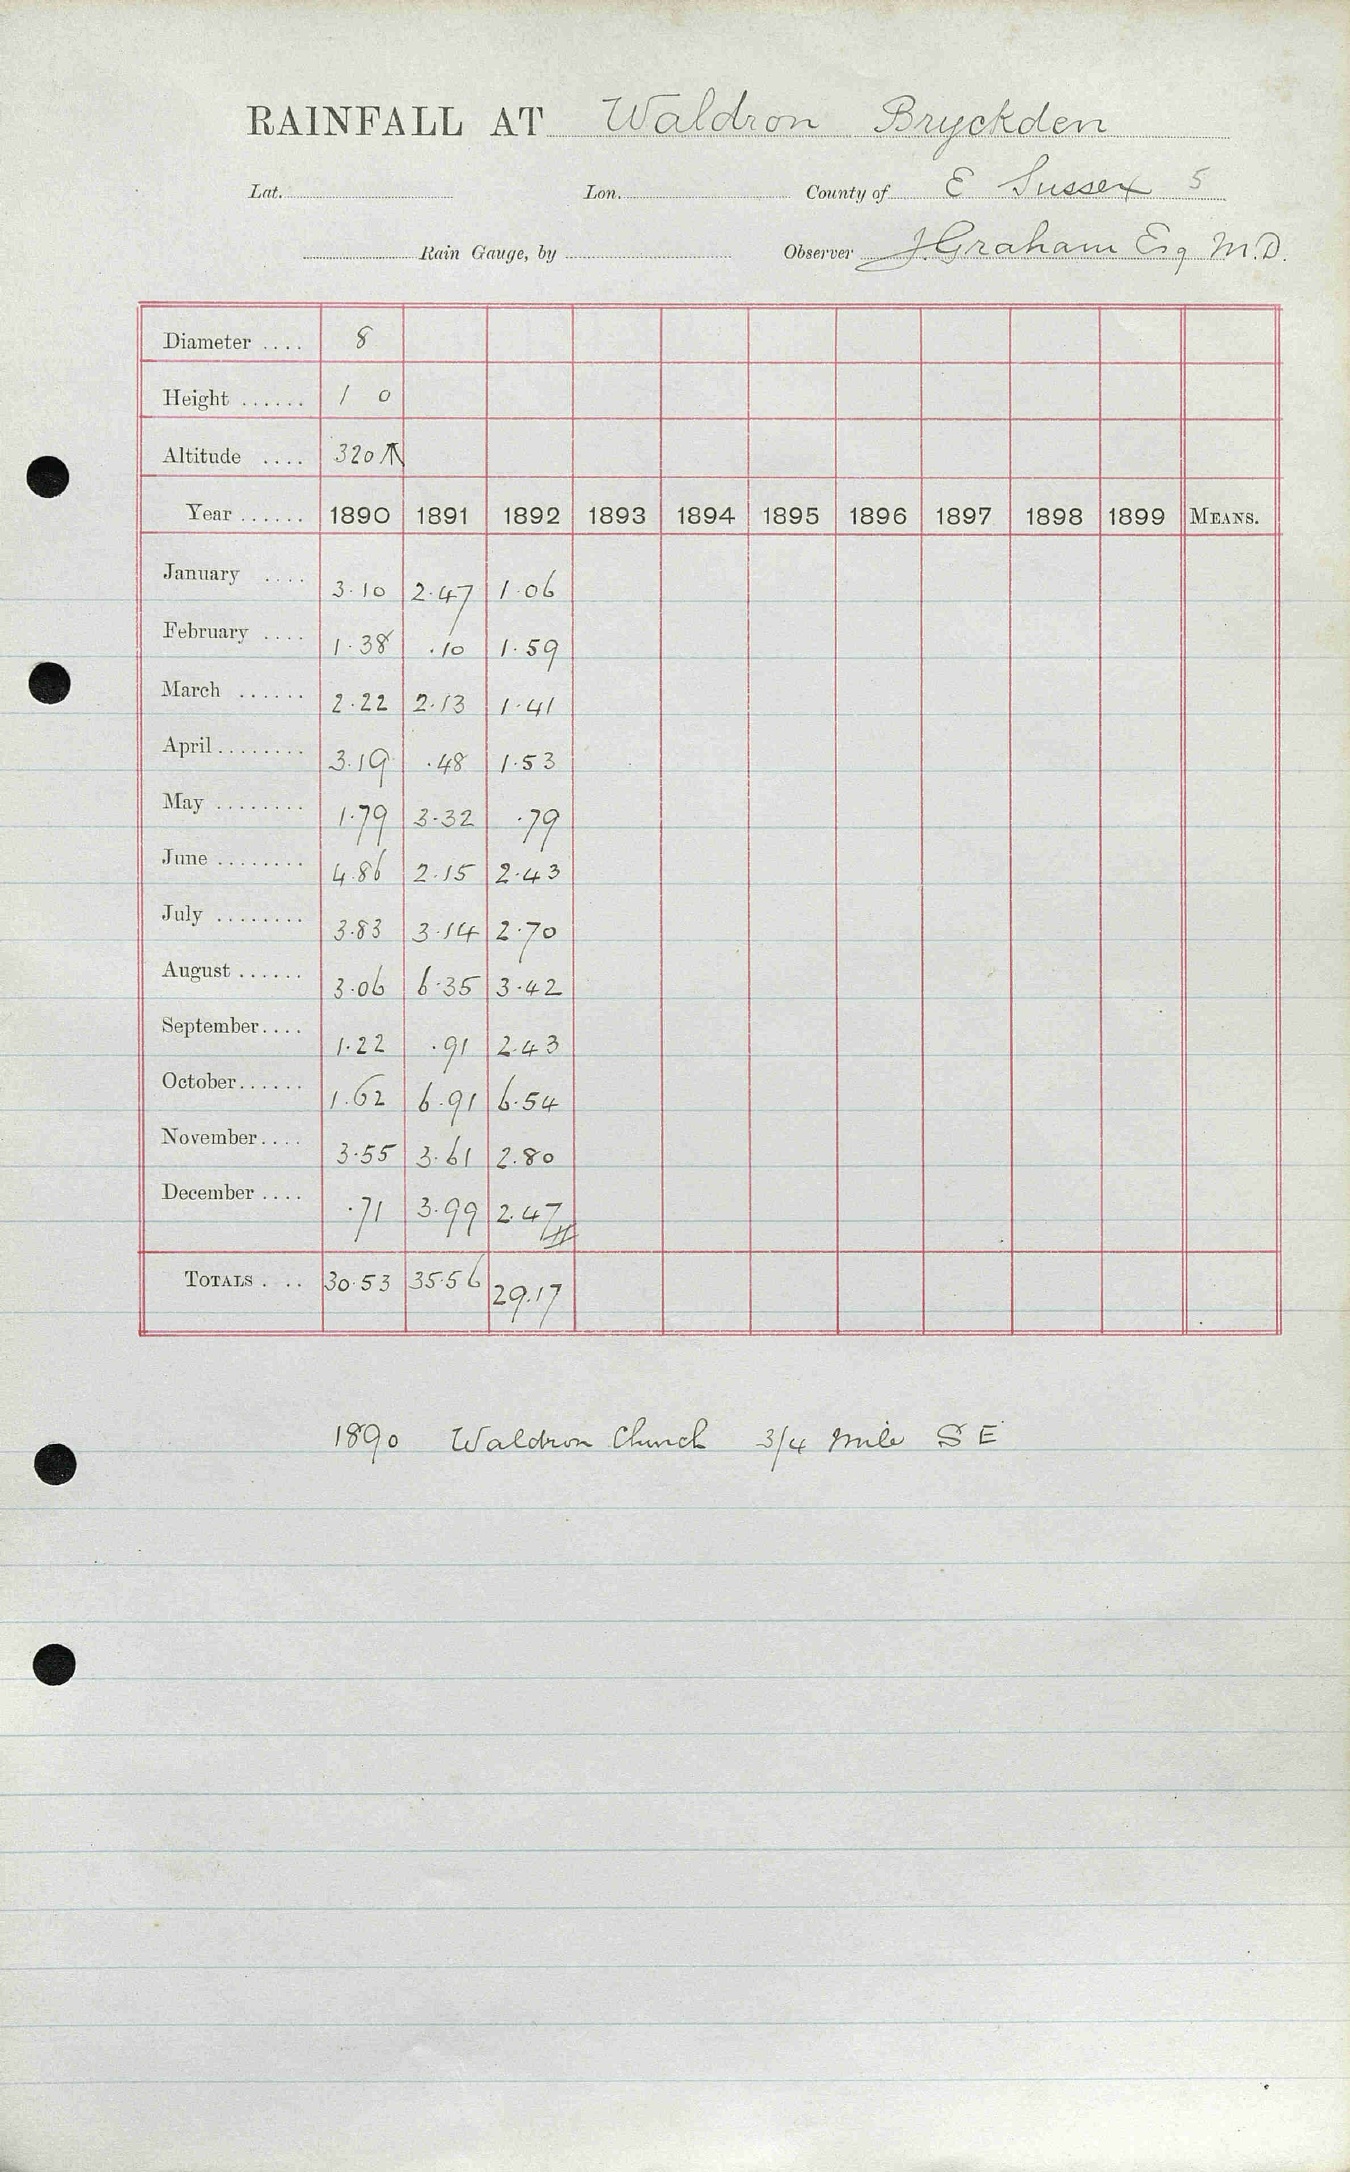 RAINFALL AT Waldron Bryckden
Lat. Lon. County of E Sussex 5
Rain Gauge, by Observer J. Graham Esq M.D.
Diameter .... 8
Height ...... 1 0
Altitude .... 320
Year ...... 1890 1891 1892 1893 1894 1895 1896 1897 1898 1899 MEANS.
January .... 3.10 2.47 1.06
February .... 1.38 .10 1.59
March ...... 2.22 2.13 1.41
April ........ 3.19 .48 1.53
May ........ 1.79 3.32 .79
June ........ 4.86 2.15 2.43
July ........ 3.83 3.14 2.70
August ...... 3.06 6.35 3.42
September.... 1.22 .91 2.43
October...... 1.62 6.91 6.54
November.... 3.55 3.61 2.80
December .... .71 3.99 2.47
TOTALS .... 30.53 35.56 29.17
1890 Waldron Church 3/4 mile S E